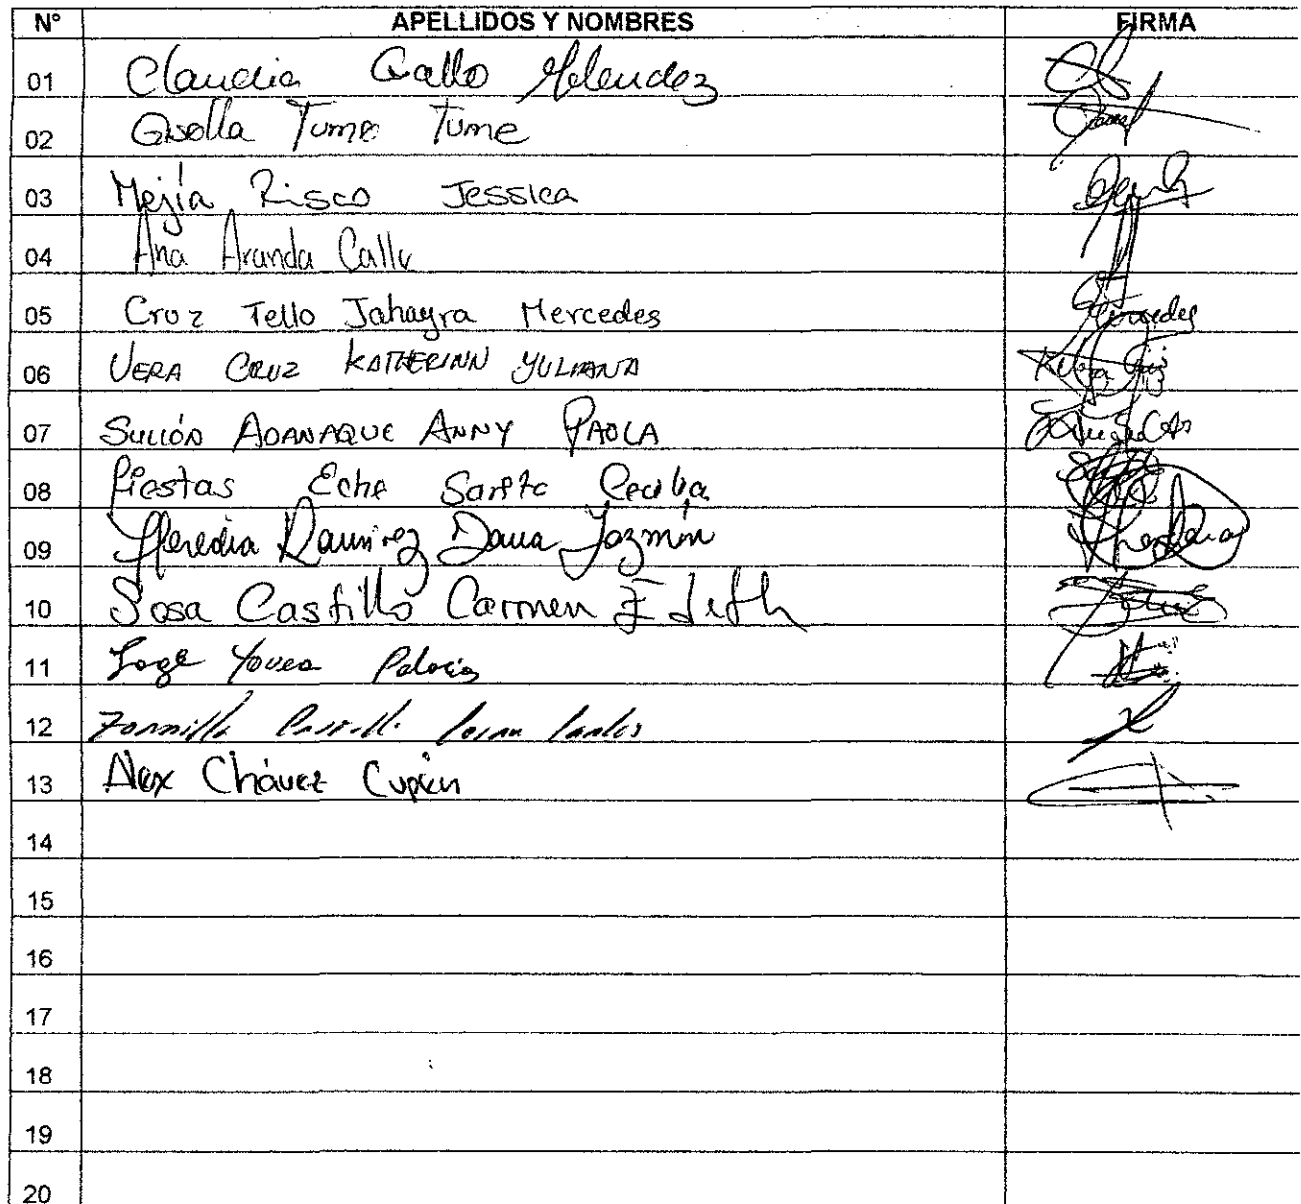 N° APELLIDOS Y NOMBRES FIRMA
01 Claudia Gallo Melendez
02 Gisella Tume Tume
03 Mejía Risco Jessica
04 Ana Aranda
05 Cruz Tello Jahayra Mercedes
06 VERA CRUZ KATHERINN YULIANA
07 SULLÓN ADANAQUE ANNY PAOLA
08 Fiestas Eche Sarita Cecilia
09 Heredia Ramirez Dana Jazmín
10 Sosa Castillo Carmen Edith
11 Jorge Yovera Palacios
12 Carlos
13 Alex Chávez
14
15
16
17
18
19
20